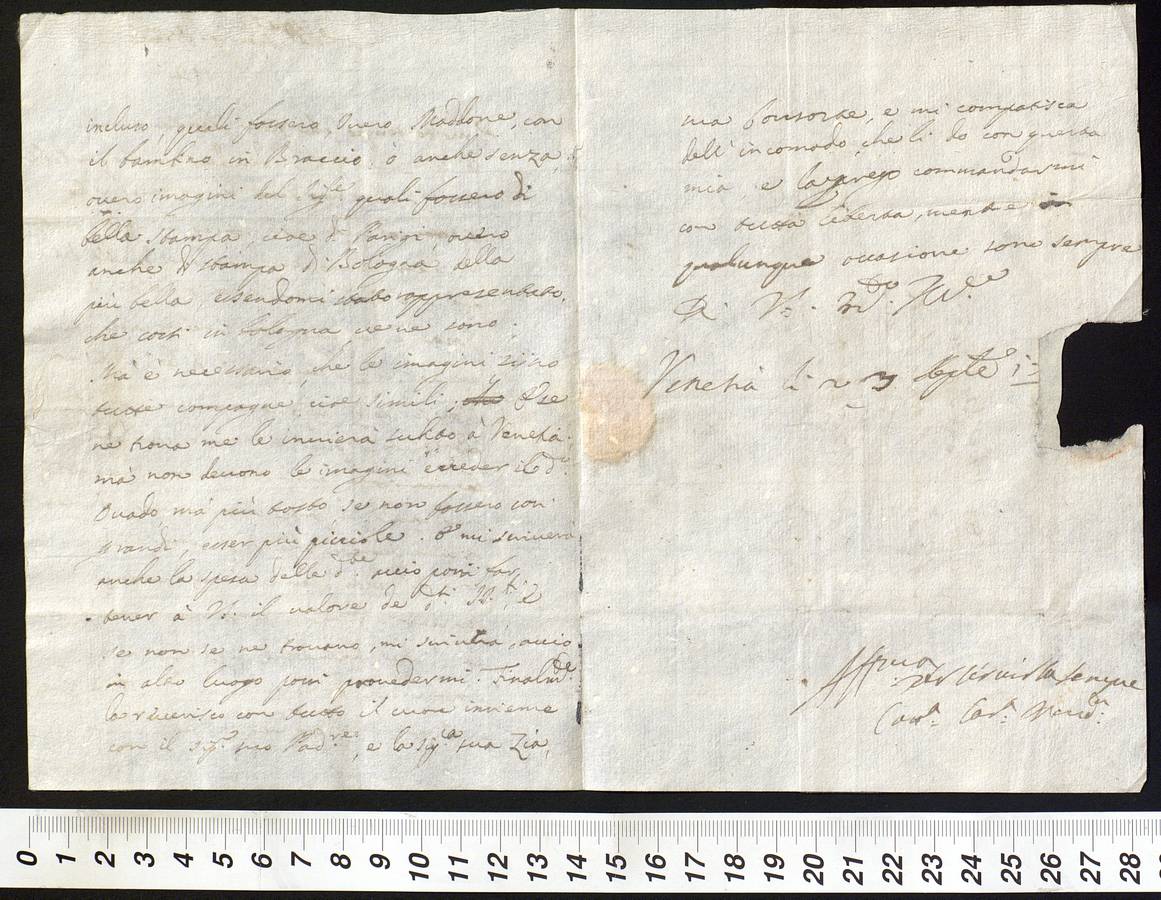 incluso, quali fossero, Overo Maddone, con
il bambino in Braccio, ò anche senza,
overo imagini del Sig.re quali fossero di
bella stampa, cioe di Parigi, overo
anche di stampa di Bologna della
più bella, essendomi stato rappresentato,
che costi in Bologna ve ne sono.
Mà è necessario, che le imagini siino
tutte compagne, cioe simili, & se
ne trova me le invierà subito à Venetia.
mà non devono le imagini ecceder il d.o
Quado mà più tosto se non fossero così
grandi, esser più picciole. & mi scriverà
anche la spesa delle d.te acciò possi far
tener à VS. il valore de
se non se ne trovano, mi scriverà, acciò
in altro luogo possi provedermi. Finalm.te
la riverisco con tutto il cuore insieme
con il Sig.r suo Padre, e la Sig.a sua Zia,
sua Consorte, e mi compatisca
dell'incomodo, che li do con questa
mia, e la prego commandarmi
con tutta libertà, mentre in
qualunque occasione sono sempre
Di VS.
Venetia li 23 Septe
Aff.mo
0 1 2 3 4 5 6 7 8 9 10 11 12 13 14 15 16 17 18 19 20 21 22 23 24 25 26 27 28